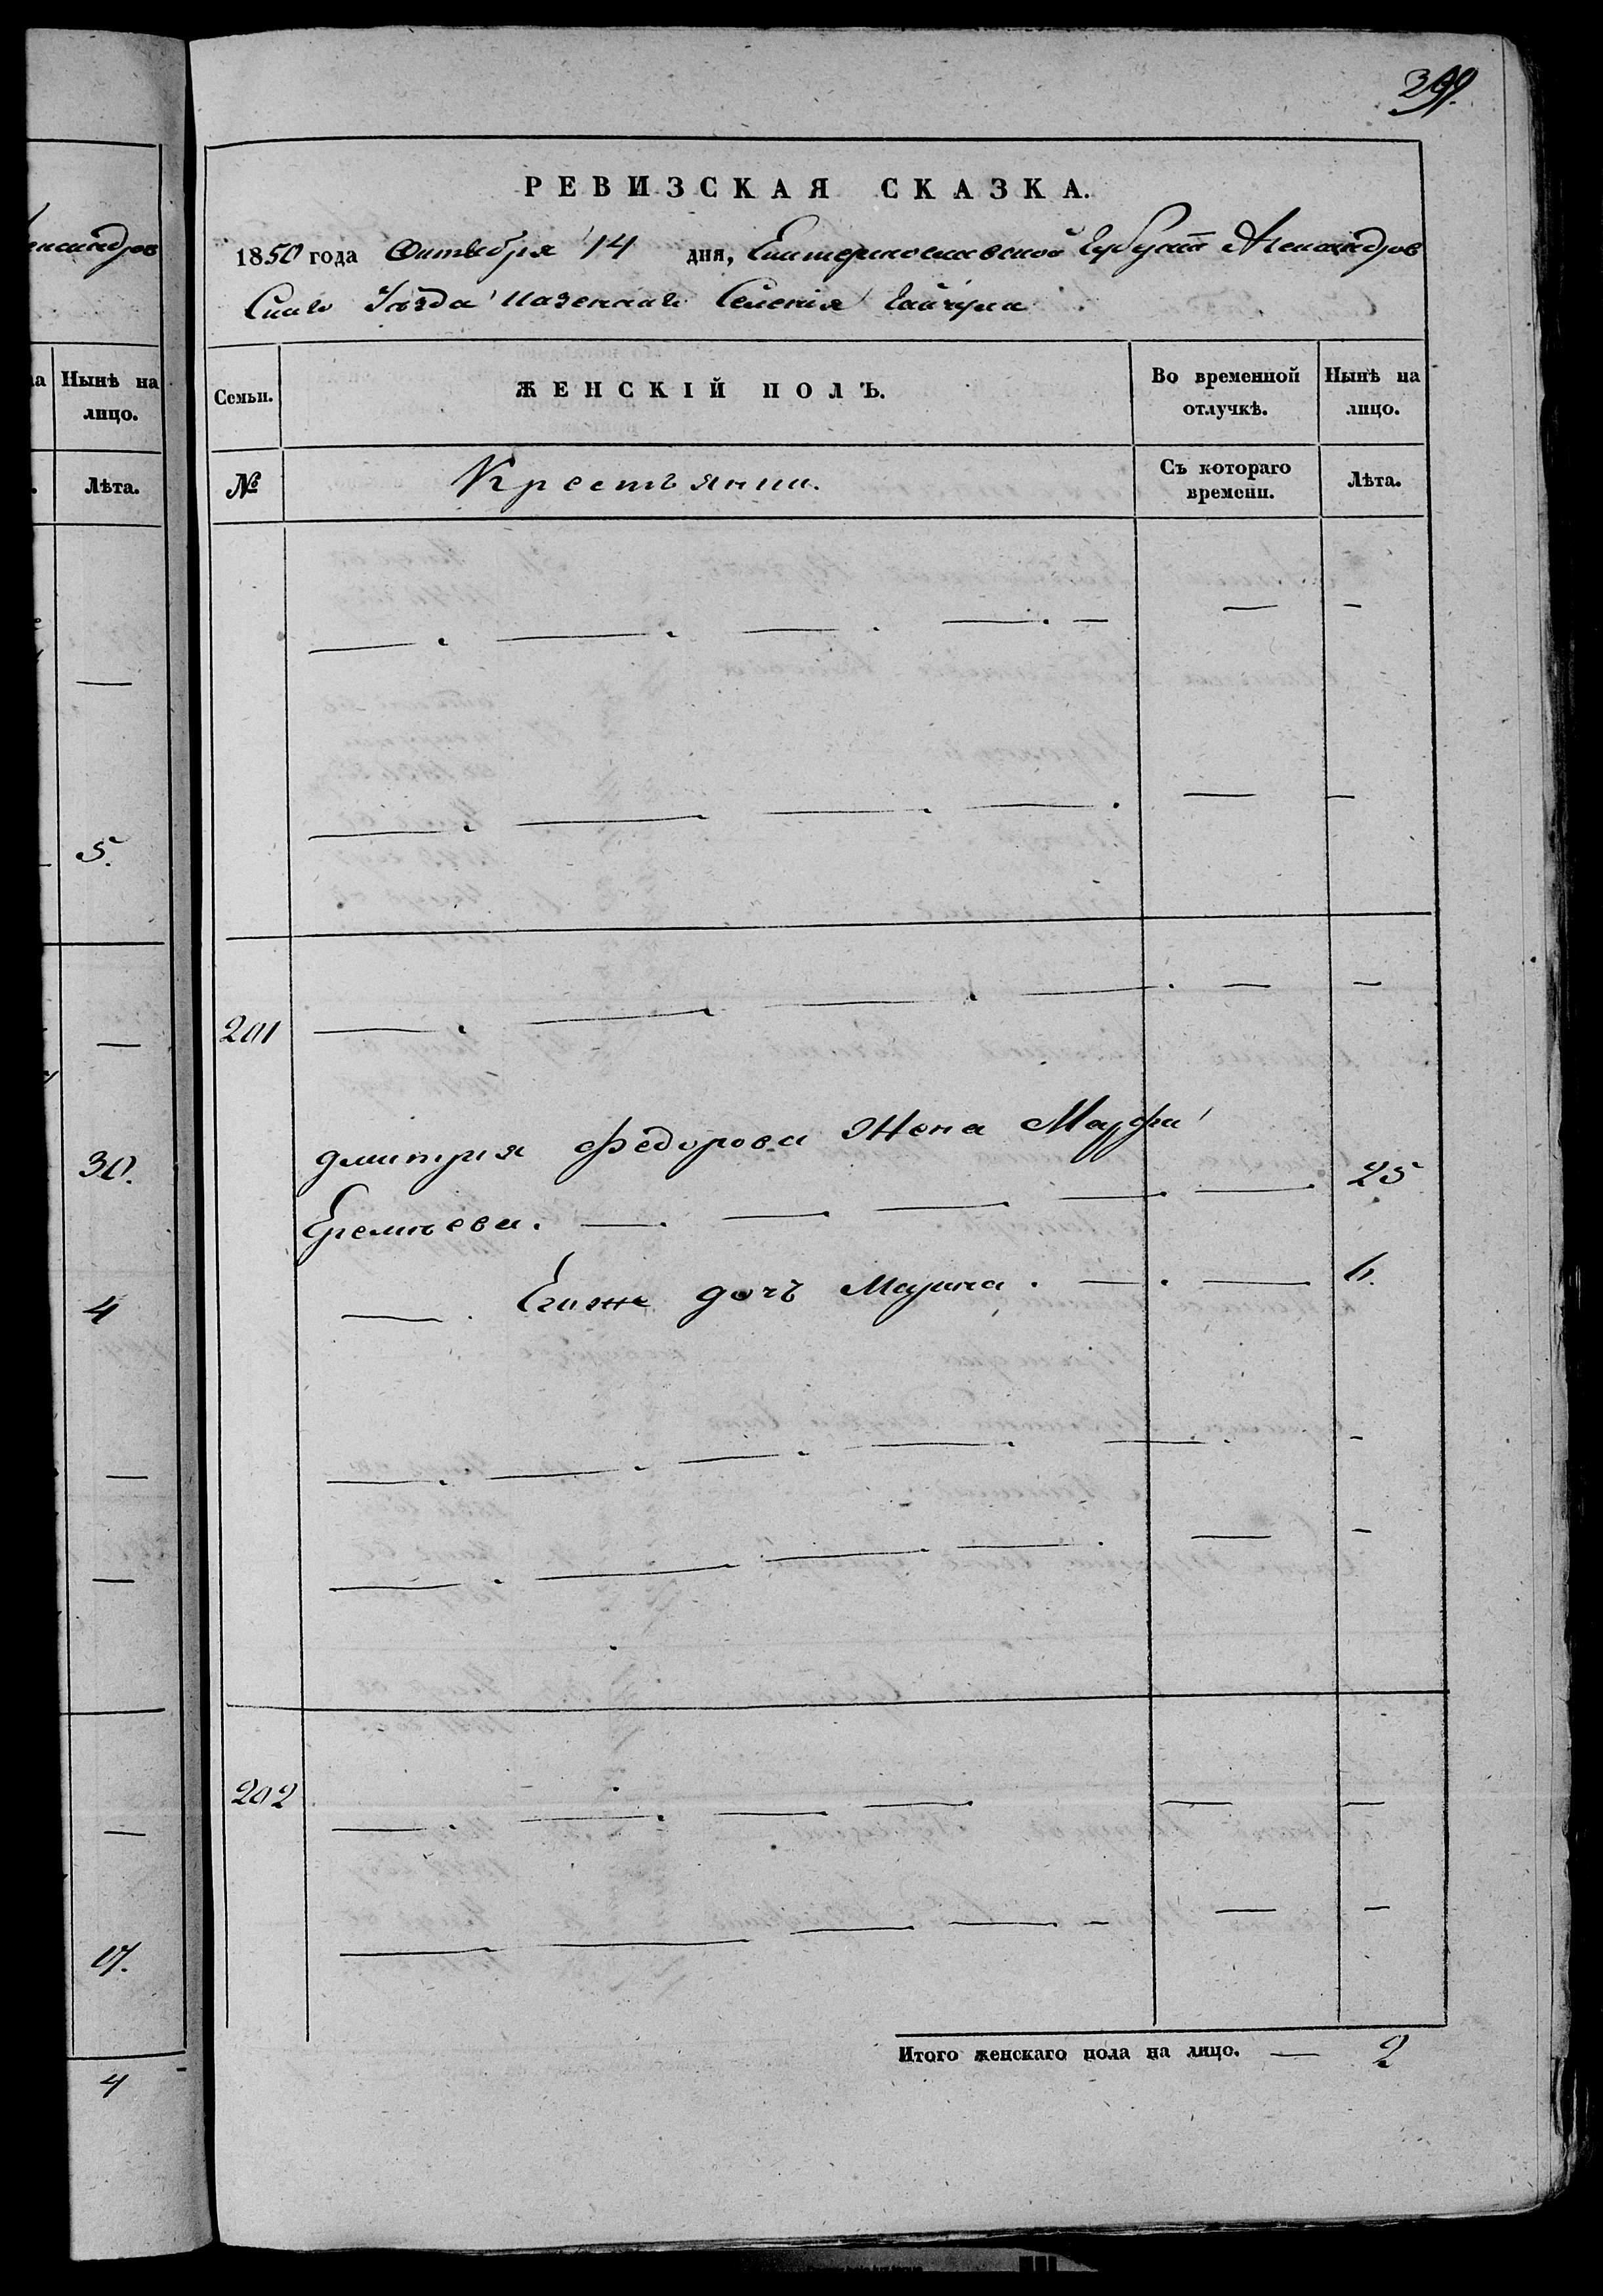 енсандров
Нынѣ на
лицо.
Лѣта.
5.
30.
4
17.
4
399.
РЕВИЗСКАЯ СКАЗКА.
1850 года Октября 14 дня, Екатеринославской Губерніи Александров
Скаго Уѣзда казеннаго Селенія Гайчула
Семьи.
ЖЕНСКІЙ ПОЛЪ.
Во временной отлучкѣ.
Нынѣ на лицо.
№
Крестьянки.
Съ котораго времени.
Лѣта.
201
Дмитрія Федорова Жена Марфа
Еремѣева. 25
Егоже дочъ Марина. 6.
202
Итого женскаго пола на лицо. — 2